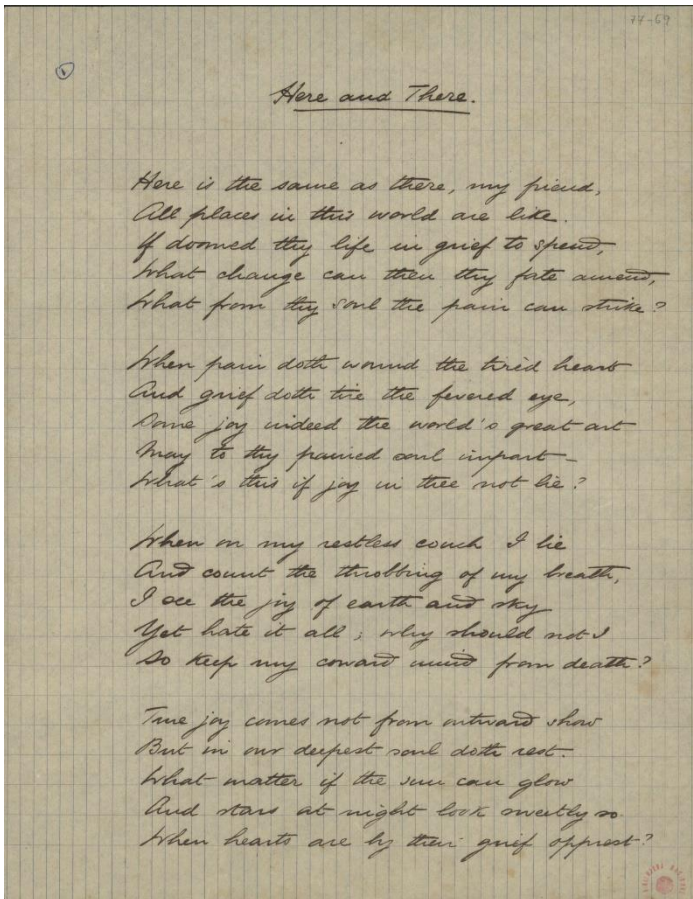 77-69
1
Here and There.
Here is the same as there, my friend,
All places in this world are like.
If doomed thy life in grief to spend,
What change can then thy fate amend,
What from thy soul the pain can strike?
When pain doth wound the tired heart
And grief doth tire the fevered eye,
Some joy indeed the world's great art
May to thy pained soul impart —
What's this if joy in thee not lie?
When on my restless couch I lie
And count the throbbing of my breath,
I see the joy of earth and sky
Yet hate it all; why should not I
So keep my coward mind from death?
True joy comes not from outward show
But in our deepest soul doth rest.
What matter if the sun can glow
And stars at night look sweetly so
When hearts are by their grief opprest?